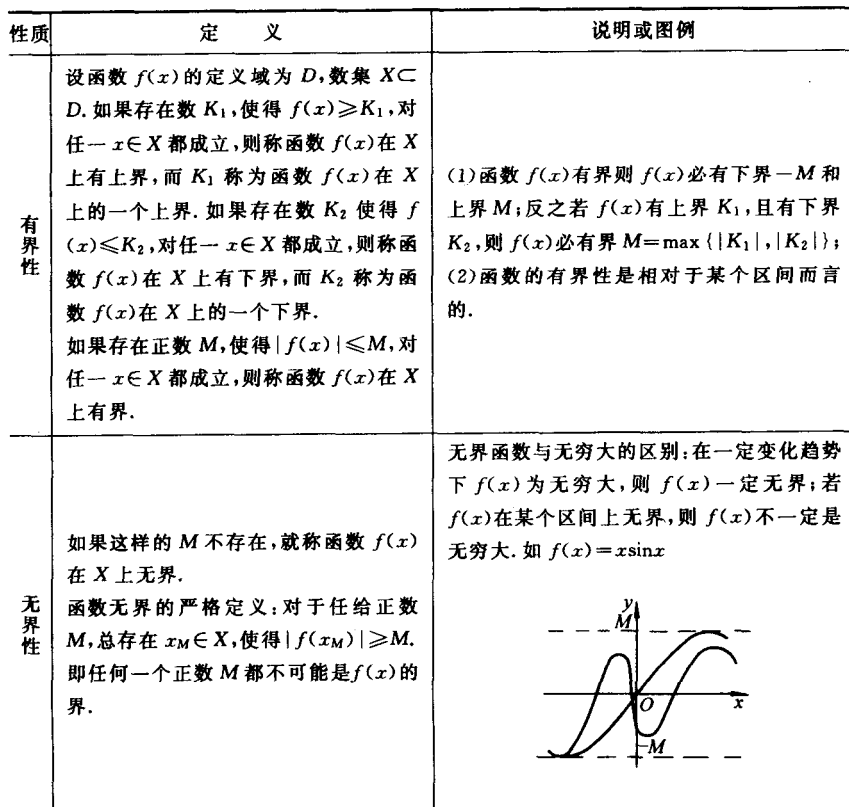 性质
定 义
说明或图例
有界性
设函数 f(x)的定义域为 D,数集 X⊂
D.如果存在数 K₁,使得 f(x)⩾K₁,对
任一 x∈X 都成立,则称函数 f(x)在 X
上有上界,而 K₁ 称为函数 f(x)在 X
上的一个上界.如果存在数 K₂ 使得 f
(x)⩽K₂,对任一 x∈X 都成立,则称函
数 f(x)在 X 上有下界,而 K₂ 称为函
数 f(x)在 X 上的一个下界.
如果存在正数 M,使得|f(x)|⩽M,对
任一 x∈X 都成立,则称函数 f(x)在 X
上有界.
(1)函数 f(x)有界则 f(x)必有下界-M 和
上界 M;反之若 f(x)有上界 K₁,且有下界
K₂,则 f(x)必有界 M=max{|K₁|,|K₂|};
(2)函数的有界性是相对于某个区间而言
的.
无界性
如果这样的 M 不存在,就称函数 f(x)
在 X 上无界.
函数无界的严格定义:对于任给正数
M,总存在 x_M∈X,使得|f(x_M)|⩾M.
即任何一个正数 M 都不可能是f(x)的
界.
无界函数与无穷大的区别:在一定变化趋势
下 f(x)为无穷大,则 f(x)一定无界;若
f(x)在某个区间上无界,则 f(x)不一定是
无穷大.如 f(x)=xsinx
y
M
O
x
-M